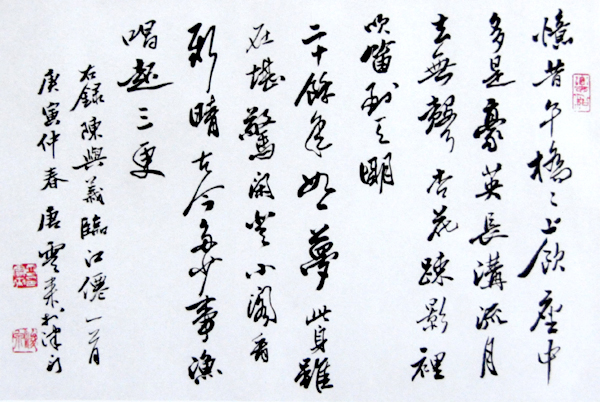 憶昔午橋〻上飲座中
多是豪英長溝流月
去無聲杏花踈影裡
吹笛到天明
二十餘年如一夢此身雖
在堪驚閑登小閣看
新晴古今多少事漁
唱起三更
右録陳與義臨江僊一首
庚寅仲春唐雲来於津门